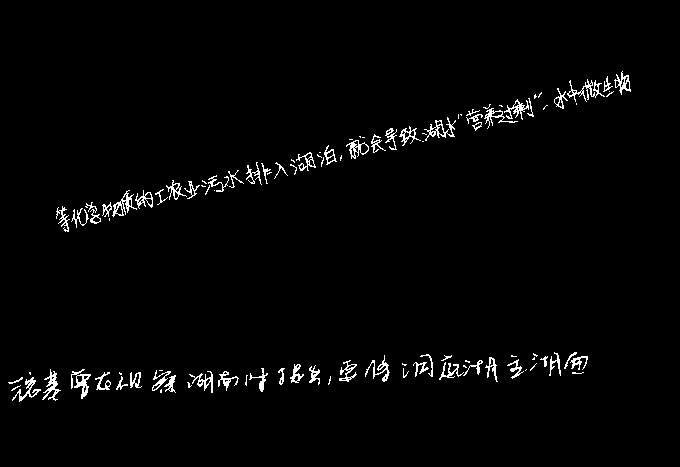 等化学物质的工农业污水排入湖泊,就会导致湖水"营养过剩"、水中微生物
镕基曾在视察湖南时指出,要将洞庭湖主湖面